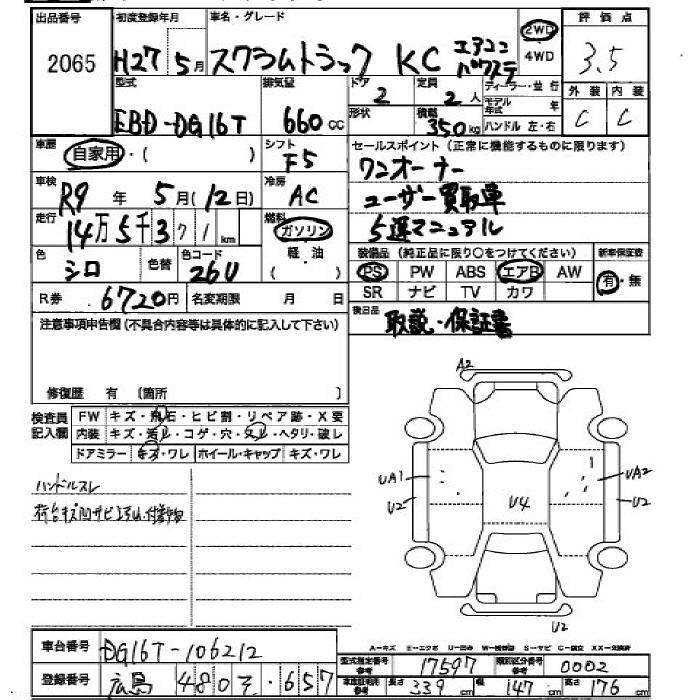 出品番号 初度登録年月 車名・グレード 評価点
2065 H27年5月 スクラムトラック KC エアコン パワステ 2WD 4WD 3.5
型式 排気量 ドア 2 定員 2人 ディーラー・並行 外装 内装
EBD-DG16T 660cc 形状 積載 350kg モデル年式 年 C C
ハンドル 左・右
車歴 自家用・( ) シフト F5 セールスポイント (正常に機能するものに限ります)
ワンオーナー
車検 R9年5月(12日) 冷房 AC ユーザー買取車
走行 14万5千371km 燃料 ガソリン 5速マニュアル
軽・油
色 シロ 色替 色コード 26U ( ) 装備品 (純正品に限り○をつけてください) 新車保証書
PS PW ABS エアB AW 有・無
R券 6720円 名変期限 月 日 SR ナビ TV カワ
注意事項申告欄(不具合内容等は具体的に記入して下さい) 後日品 取説・保証書
修復歴 有 〔箇所 〕
検査員記入欄 FW キズ・飛石・ヒビ割・リペア跡・X要
内装 キズ・汚レ・コゲ・穴・スレ・ヘタリ・破レ
ドアミラー キズ・ワレ ホイール・キャップ キズ・ワレ
A2
ハンドルスレ
UA1 UA2
U2 U4 U2
U2
車台番号 DG16T-106212
A-キズ E-エクボ U-凹み W-補修跡 S-サビ C-腐立 XX-交換済
型式指定番号 参考 17597 類別区分番号 参考 0002
登録番号 広島 480 そ ・657
車庫証明用 参考 長さ 339cm 幅 147cm 高さ 176cm